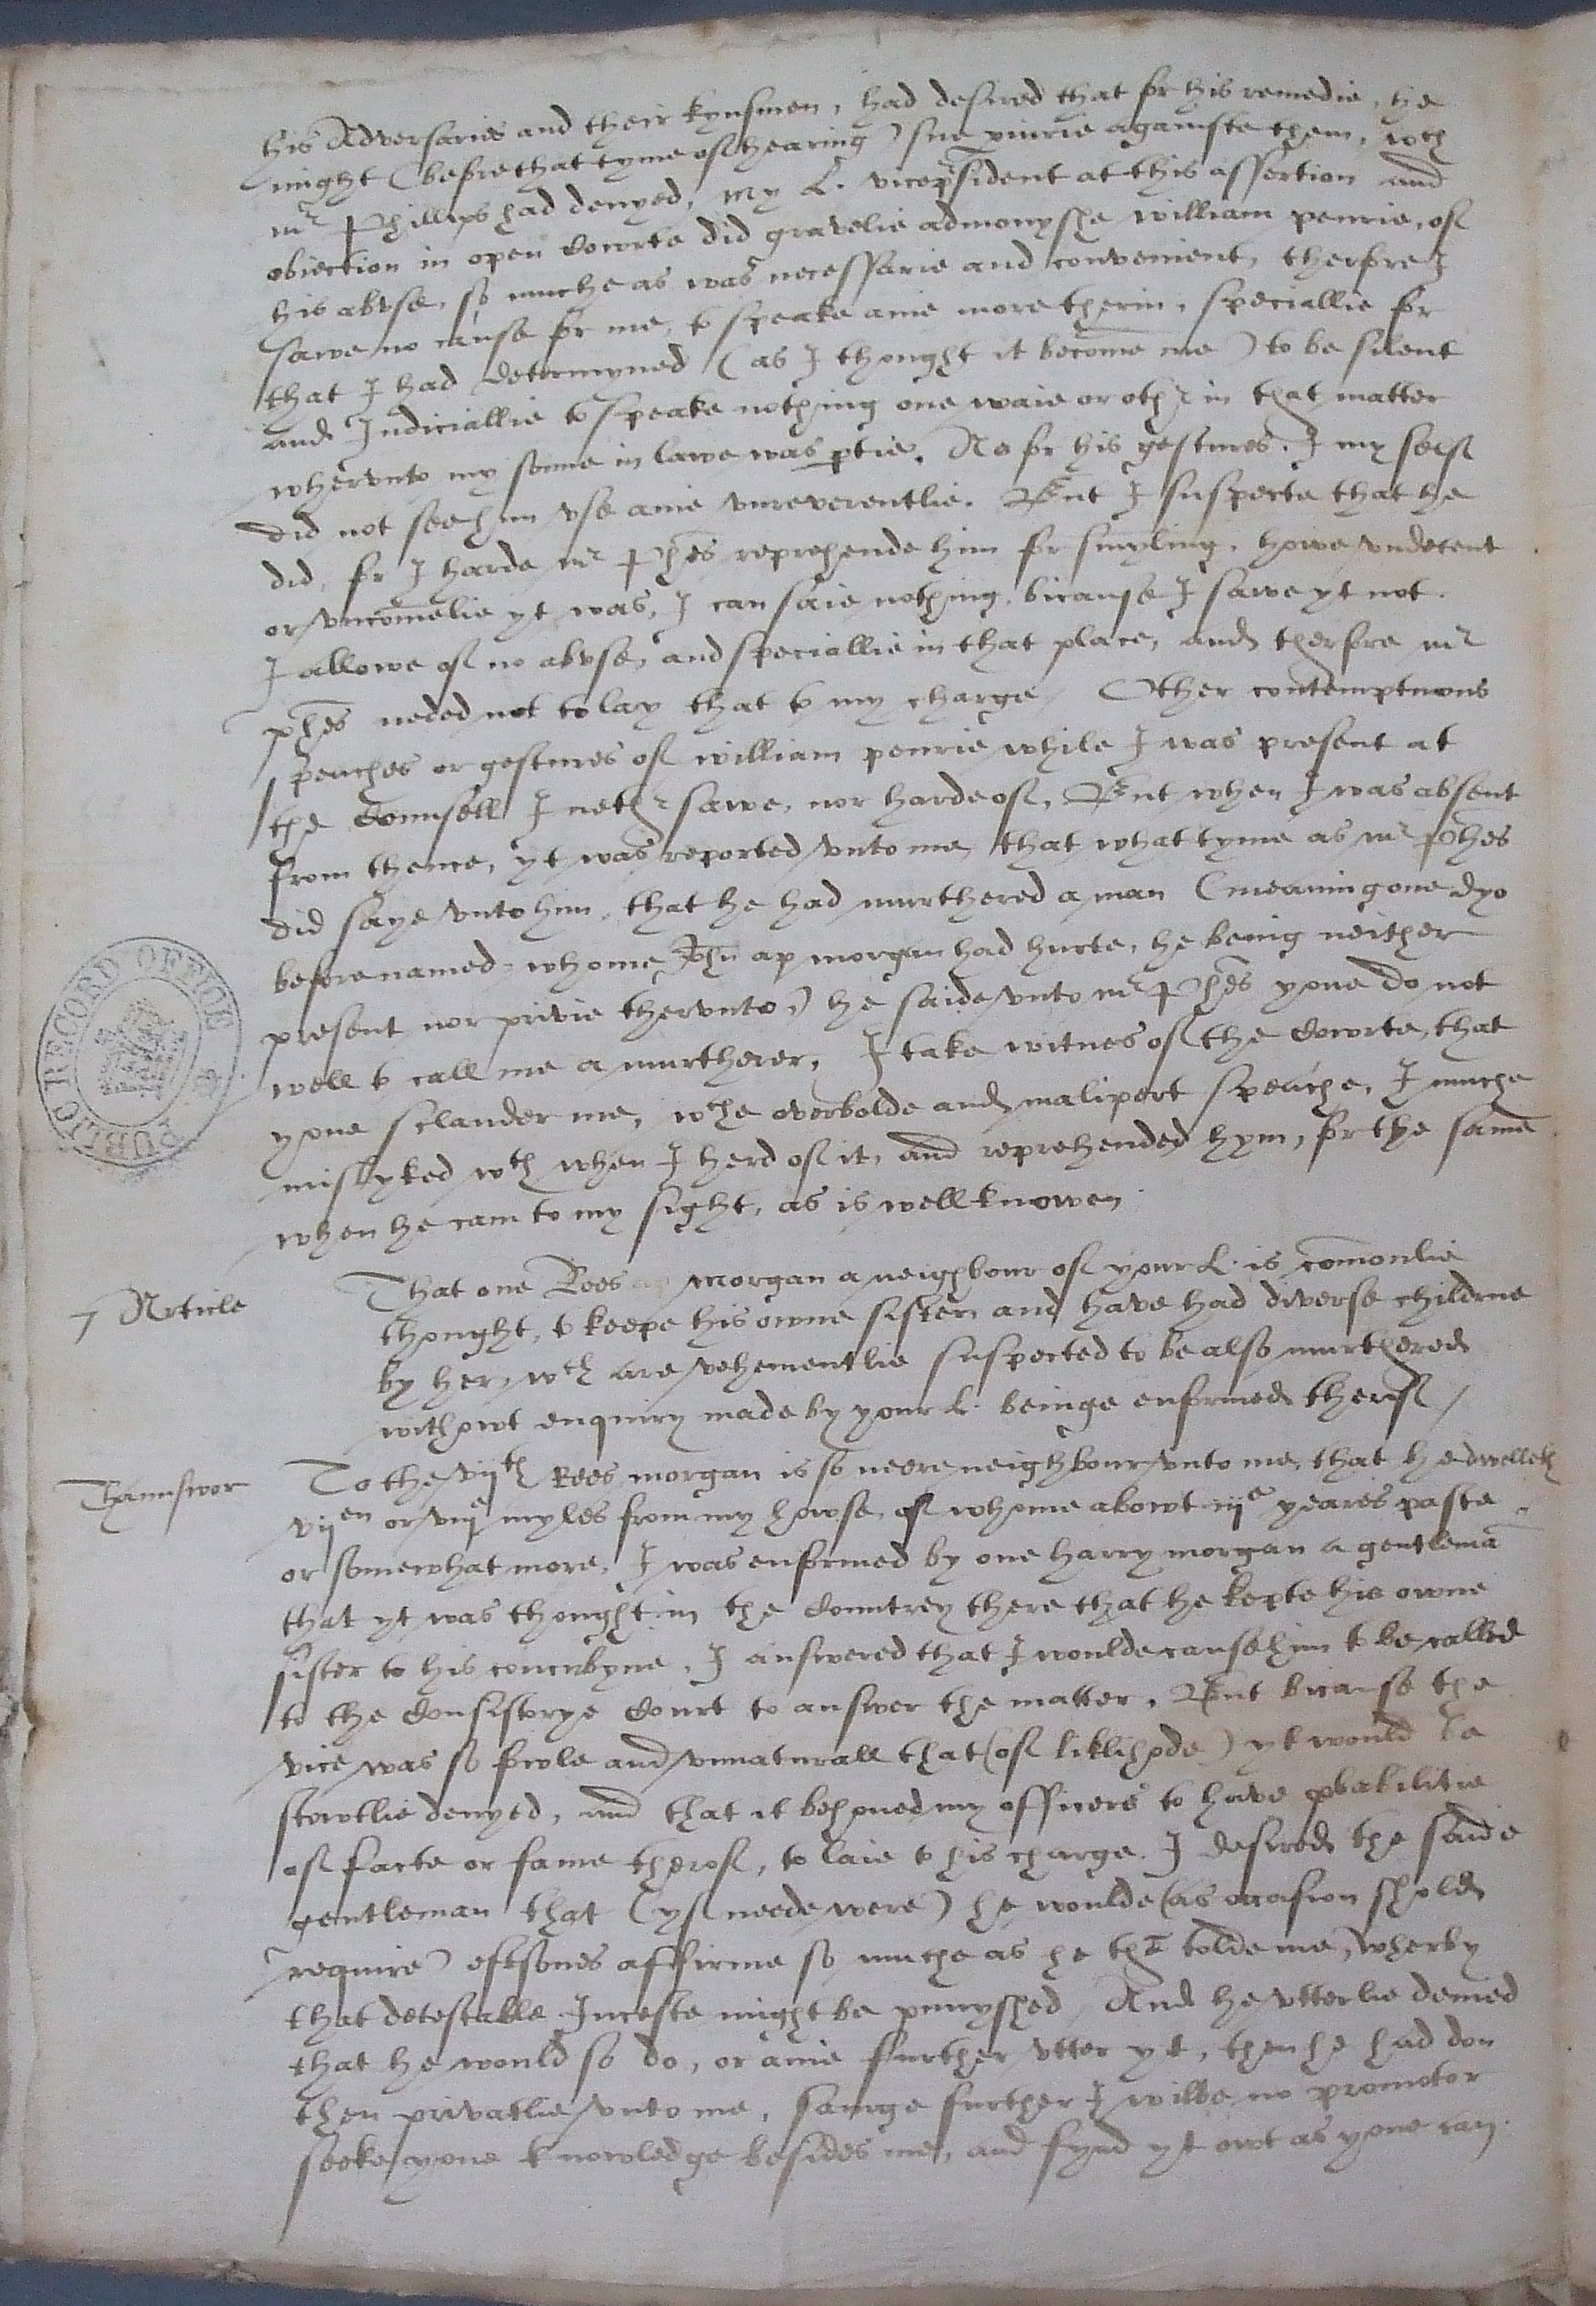 his Adversaries and their kynsmen, had desired that for his remedie, he
might (before that tyme of hearing) sue periurie againste them, wch
mr Phillips had denyed, my L. vicepresident at this assertion and
obiection in open Cowrte did gravelie admonyshe william penrie, of
his abvse, so muche as was necessarie and convenient, therfore I
sawe no cause for me, to speake anie more therin, speciallie for
that I had determyned (as I thought it become me) to be silent
and Judiciallie to speake nothing one waie or other in that matter
whervnto my sonne in lawe was ptie. As for his gestures. I my self
did not see him vse anie vnreverentlie. But I suspecte that he
did, for I harde mr Phes reprehende him for smyling. howe vndecent
or vncomelie yt was, I can saie nothing. bicause I sawe yt not.
I allowe of no abvse, and speciallie in that place, and therfore mr
phes neded not to lay that to my charge / Other contemptuous
speaches or gestures of william penrie while I was present at
the Counsell I nether sawe, nor harde of, But when I was absent
from thence, yt was reported vnto me that what tyme as mr Phes
did saye vnto him, that he had murthered a man (meaning one dyo
before named, whome John ap morgan had hurte, he being neither
present nor privie thervnto) he saide vnto mr Phes youe do not
well to call me a murtherer, I take witnes of the Cowrte, that
youe sclander me, wche overbolde and malipert speache, I muche
myslyked wth when I herd of it, and reprehended hym, for the same
when he cam to my sight, as is well knowen.
7 Article
That one Rees ap morgan a neighbour of your L. is comonlie
thought, to keepe his owne sister and have had diverse childrne
by her, wch are vehementlie suspected to be also murthered
withowt enquiry made by your L. beinge enformed therof /
Thaunswer
To the vijth Rees morgan is so neere neighbour vnto me, that he dwelleth
vijen or viij myles from my howse, of whome abowt iije yeares paste
or somewhat more, I was enformed by one harry morgan a gentleman
that yt was thought in the Countrey there that he kepte his owne
sister to his concubyne, I answered that I woulde cause him to be called
to the Consistorye Court to answer the matter, But bicause the
vice was so fowle and vnnaturall that (of liklihode) yt would be
stowtlie denyed, and that it behoued my officers to have pbabilitie
of facte or fame therof, to laie to his charge. I desired the saide
gentleman that (yf neede were) he woulde (as occasion shold
require) eftsones affirme so muche as he then tolde me, wherby
that detestable Inceste might be punyshed / And he vtterlie denied
that he would so do, or anie further vtter yt, then he had don
then privatlie vnto me, sainge further I wilbe no promotor
seeke youe knowledge besides me, and fynd yt owt as youe can.
PUBLIC RECORD OFFICE